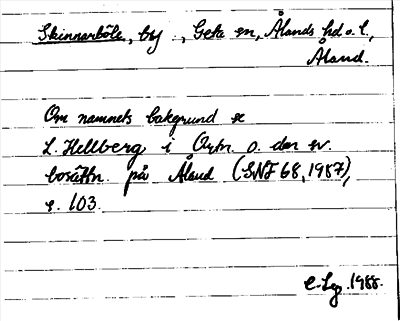 Skinnarböle, by ., Geta sn, Ålands hd o. l.,
Åland.
Om namnets bakgrund se
L. Hellberg i Ortn. o. den sv.
bosättn. på Åland (SNF 68, 1987),
s. 103.
1988.